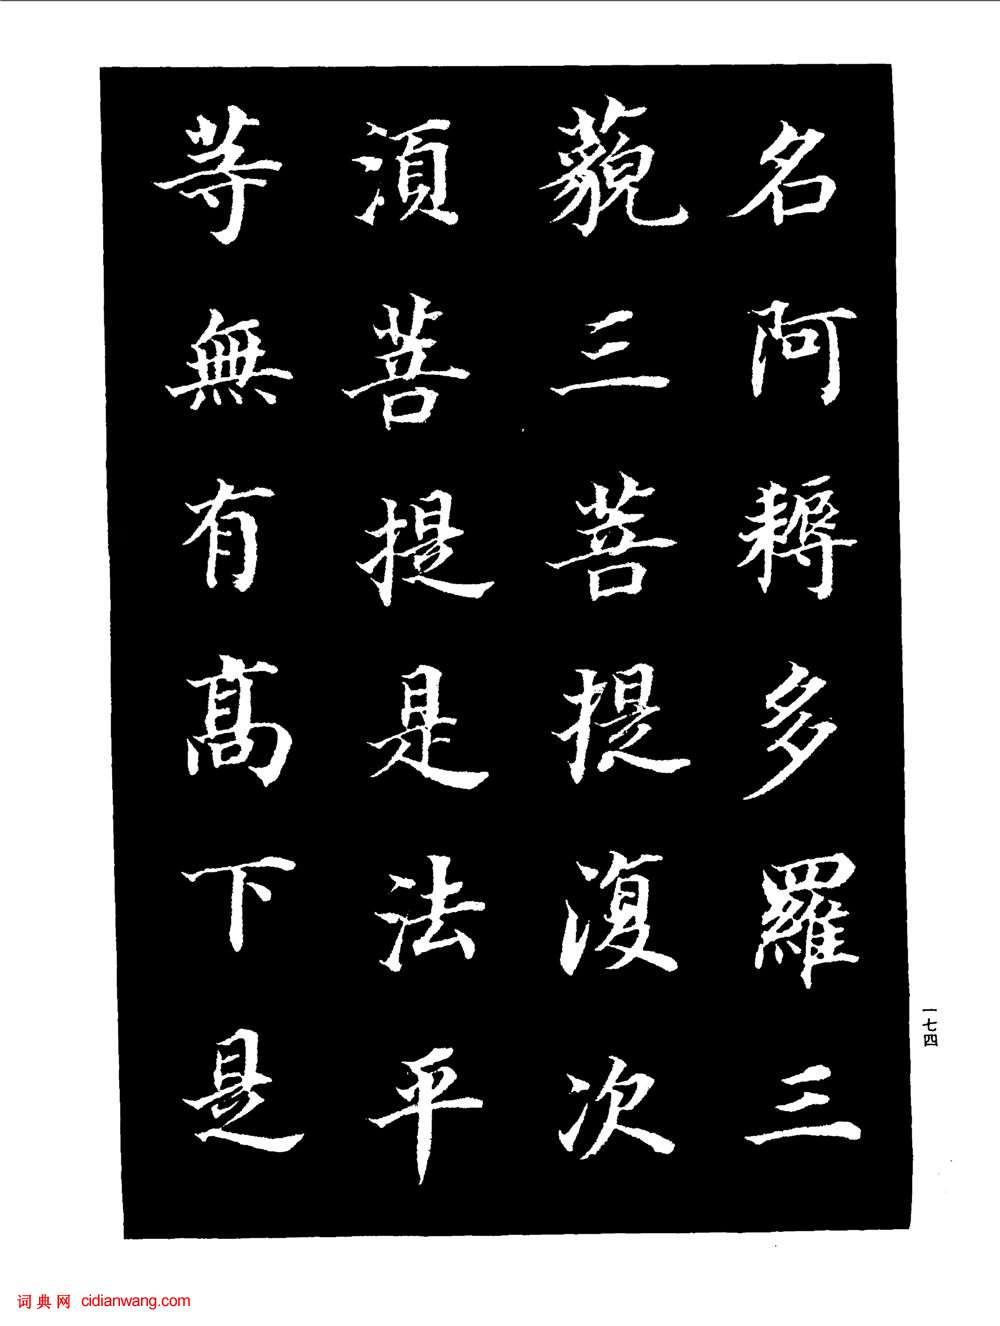 名阿耨多羅三
藐三菩提復次
須菩提是法平
等無有高下是
一七四
词典网 cidianwang.com